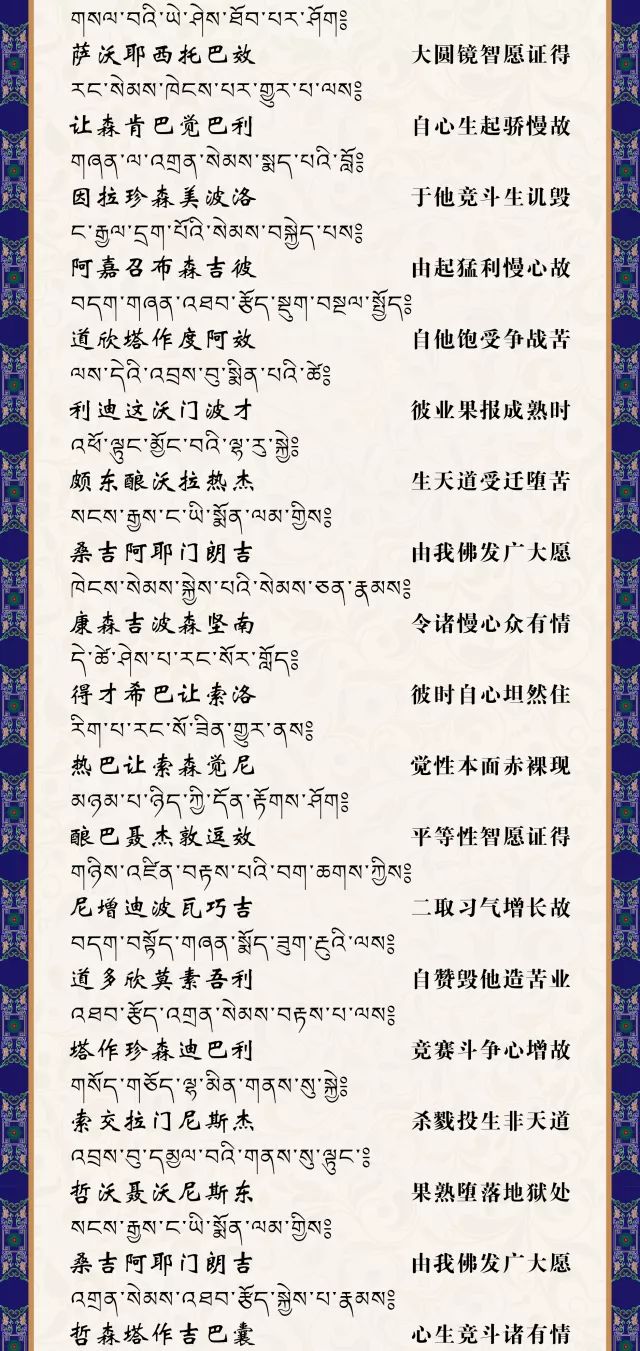 གསལ་བའི་ཡེ་ཤེས་ཐོབ་པར་ཤོག༔
萨沃耶西托巴效 大圆镜智愿证得
རང་སེམས་ཁེངས་པར་གྱུར་པ་ལས༔
让森肯巴觉巴利 自心生起骄慢故
གཞན་ལ་འགྲན་སེམས་སྨད་པའི་བློ༔
因拉珍森美波洛 于他竞斗生讥毁
ང་རྒྱལ་དྲག་པོའི་སེམས་བསྐྱེད་པས༔
阿嘉召布森吉彼 由起猛利慢心故
བདག་གཞན་འཐབ་རྩོད་སྡུག་བསྔལ་སྤྱོད༔
道欣塔作度阿效 自他饱受争战苦
ལས་དེའི་འབྲས་བུ་སྨིན་པའི་ཚེ༔
利迪这沃门波才 彼业果报成熟时
འཕོ་ལྟུང་མྱོང་བའི་ལྷ་རུ་སྐྱེ༔
颇东酿沃拉热杰 生天道受迁堕苦
སངས་རྒྱས་ང་ཡི་སྨོན་ལམ་གྱིས༔
桑吉阿耶门朗吉 由我佛发广大愿
ཁེངས་སེམས་སྐྱེས་པའི་སེམས་ཅན་རྣམས༔
康森吉波森坚南 令诸慢心众有情
དེ་ཚེ་ཤེས་པ་རང་སོར་གློད༔
得才希巴让索洛 彼时自心坦然住
རིག་པ་རང་སོ་ཟིན་གྱུར་ནས༔
热巴让索森觉尼 觉性本面赤裸现
མཉམ་པ་ཉིད་ཀྱི་དོན་རྟོགས་ཤོག༔
酿巴聂杰敦逗效 平等性智愿证得
གཉིས་འཛིན་བརྟས་པའི་བག་ཆགས་ཀྱིས༔
尼增迪波瓦巧吉 二取习气增长故
བདག་བསྟོད་གཞན་སྨོད་ཟུག་རྔུའི་ལས༔
道多欣莫素吾利 自赞毁他造苦业
འཐབ་རྩོད་འགྲན་སེམས་བརྟས་པ་ལས༔
塔作珍森迪巴利 竞赛斗争心增故
གསོད་གཅོད་ལྷ་མིན་གནས་སུ་སྐྱེ༔
索交拉门尼斯杰 杀戮投生非天道
འབྲས་བུ་དམྱལ་བའི་གནས་སུ་ལྟུང་༔
哲沃聂沃尼斯东 果熟堕落地狱处
སངས་རྒྱས་ང་ཡི་སྨོན་ལམ་གྱིས༔
桑吉阿耶门朗吉 由我佛发广大愿
འགྲན་སེམས་འཐབ་རྩོད་སྐྱེས་པ་རྣམས༔
哲森塔作吉巴囊 心生竞斗诸有情